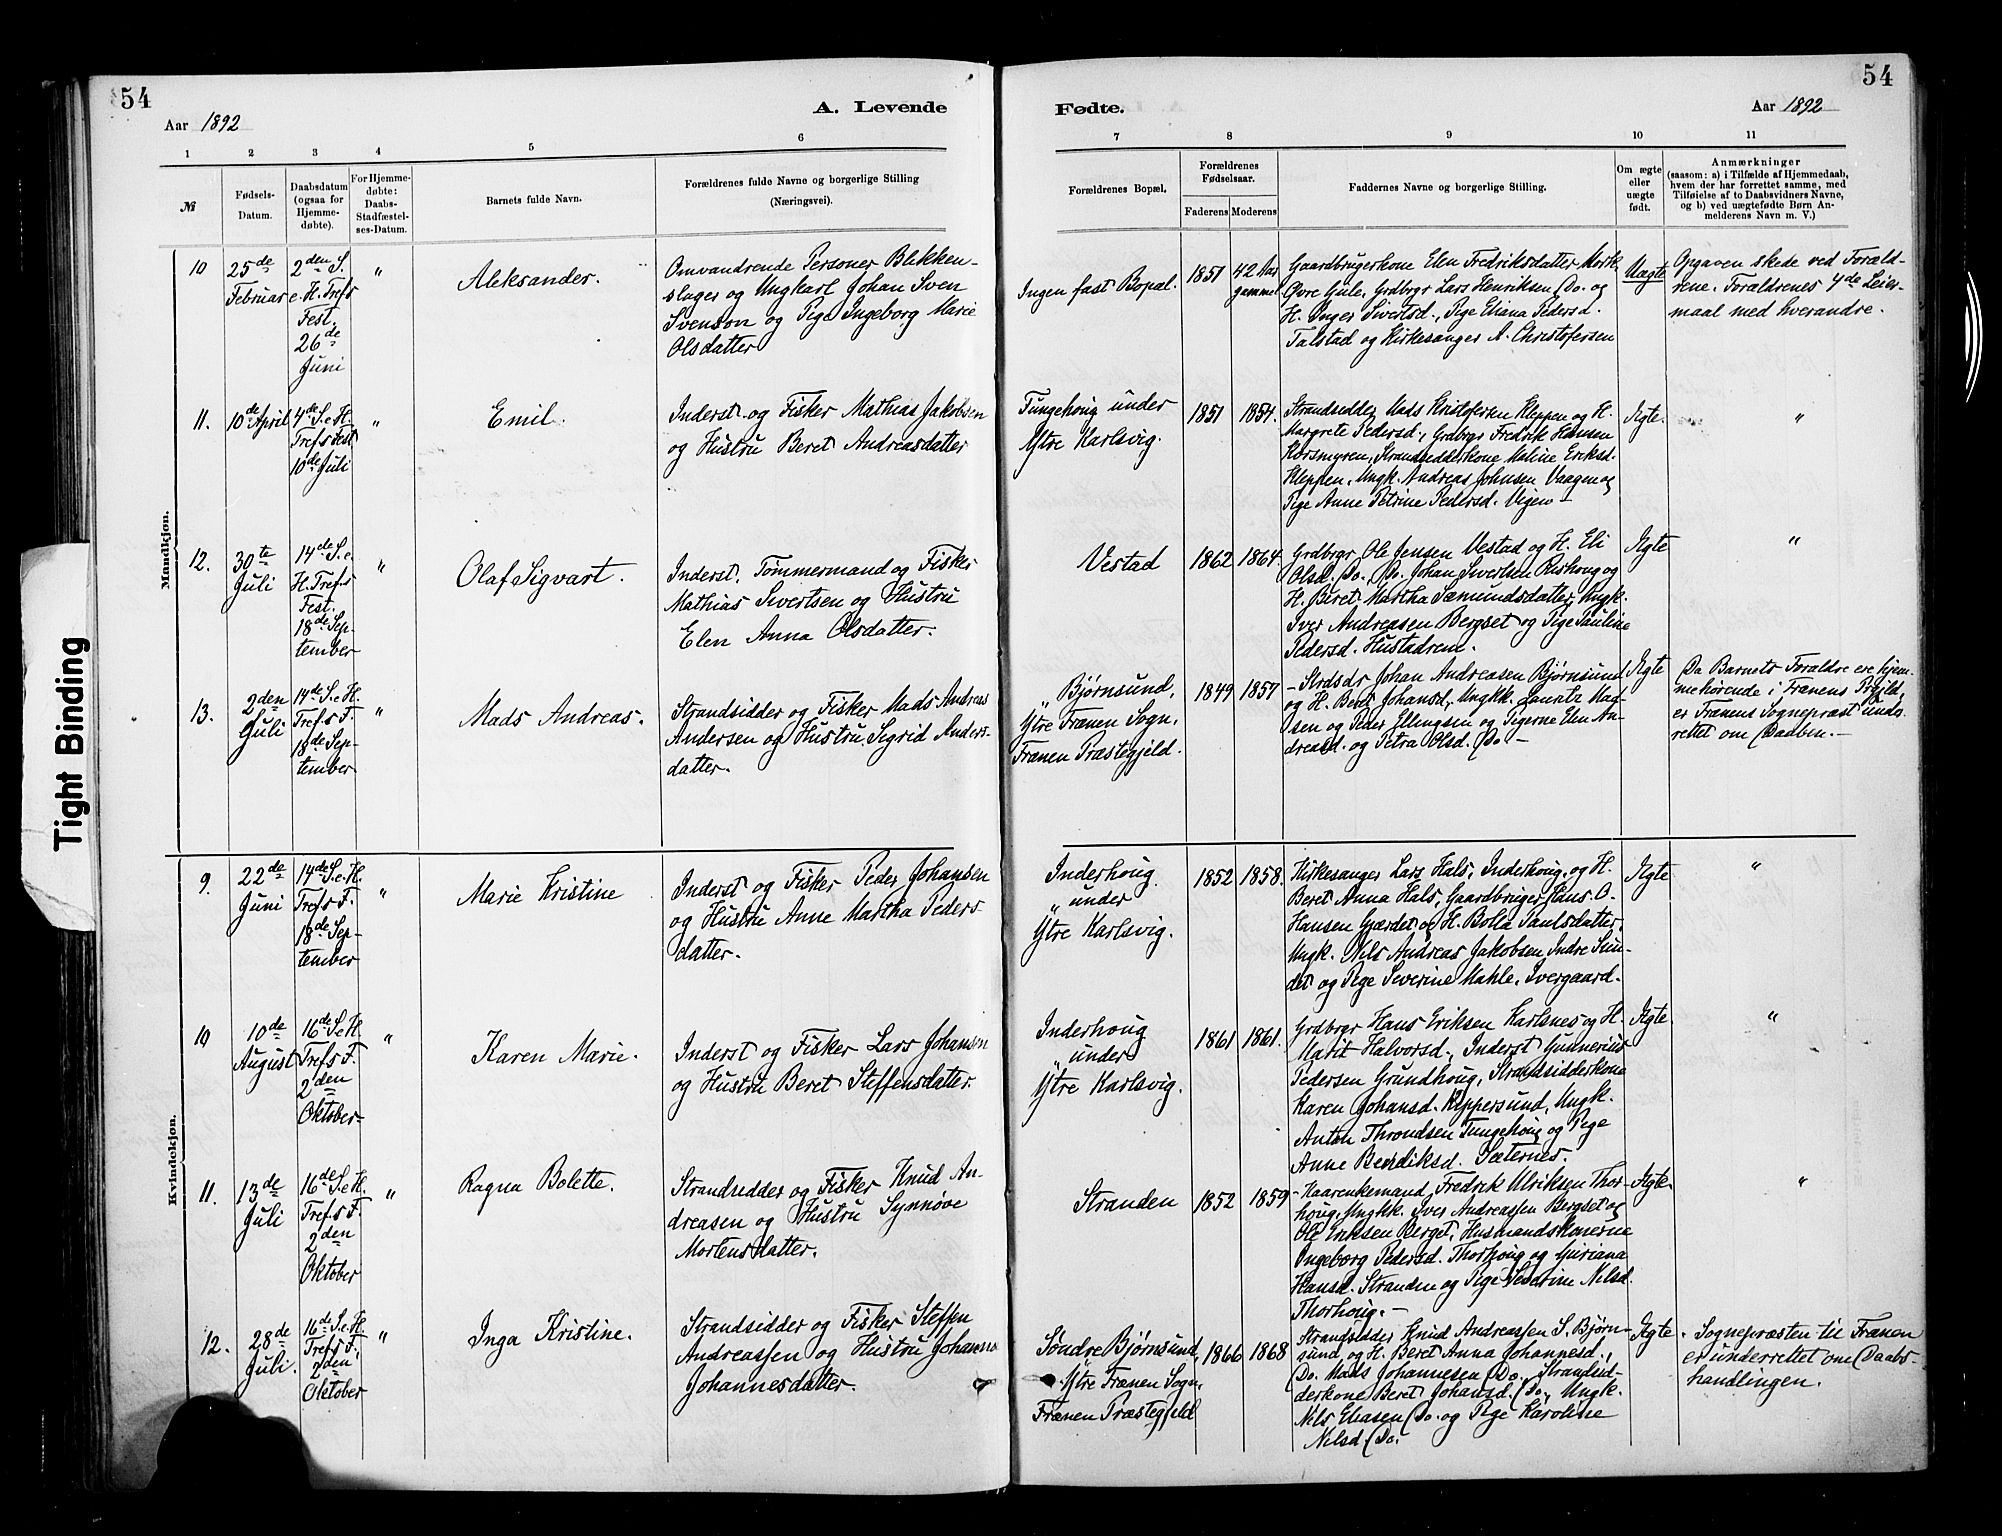 54
54
A. Levende
Fødte.
Aar 1892
Aar 1892
1 2 3 4 5 6
7 8 9 10 11
№
Fødsels-
Datum.
Daabsdatum
(ogsaa for
Hjemme-
døbte).
For Hjemme-
døbte:
Daabs-
Stadfæstel-
ses-Datum.
Barnets fulde Navn.
Forældrenes fulde Navne og borgerlige Stilling
(Næringsvei).
Forældrenes Bopæl.
Forældrenes
Fødselsaar.
Faderens Moderens
Faddernes Navne og borgerlige Stilling.
Om ægte
eller
uægte
født.
Anmærkninger
(saasom: a) i Tilfælde af Hjemmedaab,
hvem der har forrettet samme, med
Tilføielse af to Daabsvidners Navne,
og b) ved uægtefødte Børn An-
melderens Navn m. V.)
Mandkjøn.
10
25de
Februar
2den S.
e. H. Trefs
Fest.
26de
Juni
"
Aleksander.
Omvandrende Personer Blikken-
slager og Ungkarl Johan Sven
Svenson og Pige Ingeborg Marie
Olsdatter
Ingen fast Bopæl.
1851
42 Aar
gammel
Gaardbrugerkone Elen Fredriksdatter Mork
Øvre Gule, Grdbrgr Lars Henriksen Do. og
H. Inger Sivertsd., Pige Eliana Pedersd.
Talstad og Kirkesanger A. Christofersen
Uægte
Opgaven skede ved Foræld-
rene. Forældrenes 4de Leier-
maal med hverandre.
11.
10de April
4de S. e. H.
Trefs Fest
10de Juli
"
Emil.
Inderst og Fisker Mathias Jakobsen
og Hustru Beret Andreasdatter
Tungehoug under
Ytre Karlsvig.
1851
1854.
Strandsidder Mads Kristofersen Kleppen og H.
Margrete Pedersd., Grdbrgr Fredrik Hansen
Korsmyren, Strandsidderkone Maline Eriksd.
Kleppen, Ungk. Andreas Johnsen Vaagen og
Pige Anne Petrine Pedersd. Vigen -
Ægte.
"
12.
30te
Juli
14de S. e.
H. Trefs
Fest.
18de Sep-
tember
"
Olaf Sigvart.
Inderst, Tømmermand og Fisker
Mathias Sivertsen og Hustru
Elen Anna Olsdatter.
Vestad
1862
1864.
Grdbrgr Ole Jensen Vestad og H. Eli
Olsd. Do., Do. Johan Sivertsen Rishoug og
H. Beret Martha Sæmundsdatter, Ungk.
Iver Andreasen Bergset og Pige Pauline
Pedersd. Hustadrem.
Ægte
"
13.
2den
Juli
14de S. e. H.
Trefs F.
18de Sep-
tember.
"
Mads Andreas.
Strandsidder og Fisker Mads Andreas
Andersen og Hustru Sigrid Anders-
datter.
Bjørnsund,
Ytre Frænen Sogn,
Frænen Præstegjeld.
1849
1857
- Strdsdr Johan Andreasen Bjørnsund
og H. Beret Johansd., Ungkk. Lauritz Mad-
sen og Peder Ellingsen og Pigerne Elen An-
dreasd. og Petra Olsd. Do. -
Ægte
Da Barnets Forældre ere hjem-
mehørende i Frænens Prgjld,
er Frænens Sognepræst under-
rettet om Daaben.-
Kvindekjøn.
9.
22de
Juni
14de S. e. H.
Trefs F.
18de Sep-
tember
"
Marie Kristine
Inderst og Fisker Peder Johansen
og Hustru Anne Martha Peders-
datter.
Inderhoug
" under
Ytre Karlsvig.
1852
1858.
Kirkesanger Lars Hals, Inderhoug, og H.
Beret Anna Hals, Gaardbruger Hans O.
Hansen Gjærdet og H. Bolla Paulsdatter,
Ungk. Nils Andreas Jakobsen Indre Sun-
det og Pige Severine Mahle. Ivergaard.
Ægte
"
10
10de
August
16de S. e. H.
Trefs F.
2den
Oktober
"
Karen Marie.
Inderst og Fisker Lars Johansen
og Hustru Beret Steffensdatter.
Inderhoug
" under
Ytre Karlsvig.
1861
1861.
Grdbrgr Hans Eriksen Karlsnes og H.
Marit Halvorsd., Inderst Gunnerius
Pedersen Grundhoug, Strandsidderkone
Karen Johansd. Kippersund, Ungk.
Anton Throndsen Tungehoug og Pige
Anne Bendiksd. Sæternes.
Ægte.
"
11.
13de
Juli
16de S. e. H.
Trefs F.
2den
Oktober
"
Ragna Bolette.
Strandsidder og Fisker Knud An-
dreasen og Hustru Synnøve
Mortensdatter.
Stranden
1852
1859
- Kaarenkemand Fredrik Ulriksen Thor-
houg, Ungkk. Iver Andreassen Bergset og
Ole Eriksen Berget, Husmandskonerne
Ingeborg Pedersd. Thorhoug og Guriana
Hansd. Stranden og Pige Severine Nilsd.
Thorhoug.-
Ægte.
"
12.
28de
Juli.
16de S. e. H.
Trefs F.,
2den
Oktober
"
Inga Kristine.
Strandsidder og Fisker Steffen
Andreassen og Hustru Johanna
Johannesdatter.
Søndre Bjørnsund,
Ytre Frænen Sogn,
Frænen Præstegjeld
1866
1868
Strandsidder Knud Andreassen S. Bjørn-
sund og H. Beret Anna Johannesd.,
Do. Mads Johannesen Do., Strandsid-
derkone Beret Johansd. Do., Ungk.
Nils Eliasen Do. og Pige Karoline
Nilsd. Do.
Ægte
. Sognepræsten til Frænen
er underrettet om Daabs-
handlingen.
Tight Binding